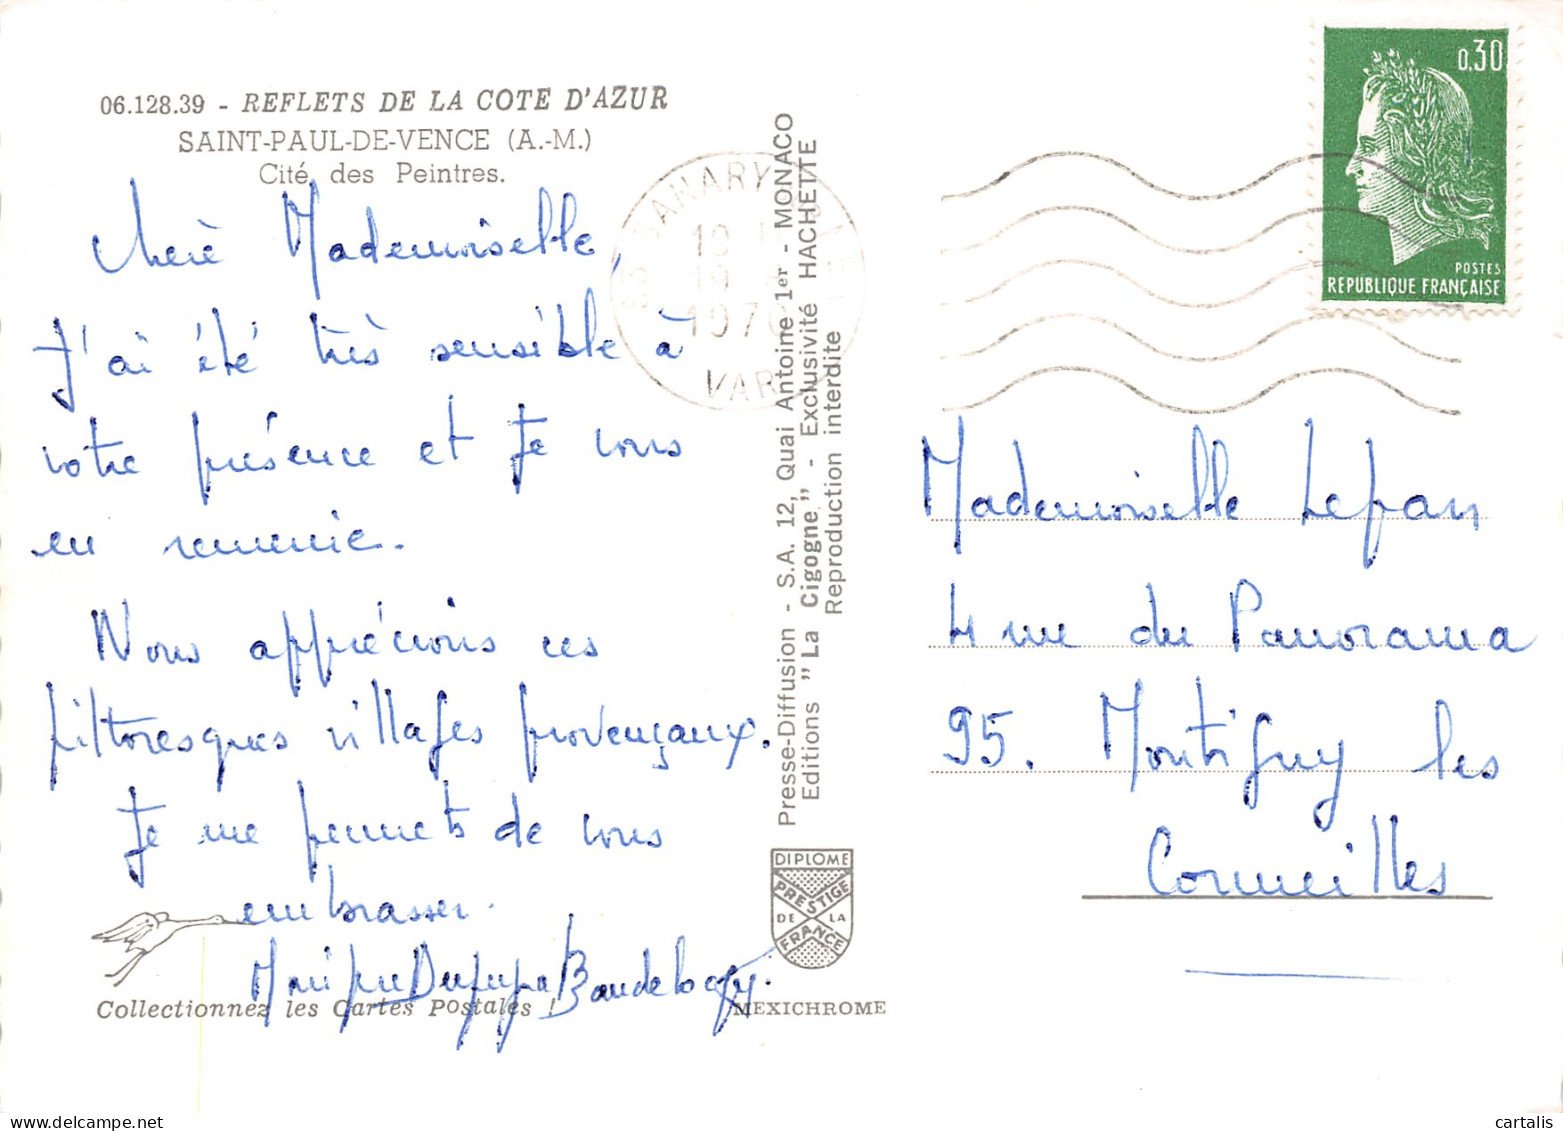 06.128.39 - REFLETS DE LA COTE D'AZUR
SAINT-PAUL-DE-VENCE (A.-M.)
Cité des Peintres.
Chère Mademoiselle,
J'ai été très sensible à
votre présence et je vous
en remercie.
Nous apprécions ces
pittoresques villages provençaux.
Je me permets de vous
embrasser.
Baudelocq.
Collectionnez les Cartes Postales !
MEXICHROME
SANARY
VAR
Presse-Diffusion - S.A. 12, Quai Antoine 1er - MONACO
Editions "La Cigogne" - Exclusivité HACHETTE
Reproduction interdite
DIPLOME
PRESTIGE
DE LA
FRANCE
0,30
POSTES
REPUBLIQUE FRANÇAISE
Mademoiselle Lepan
4 rue du Panorama
95. Montigny les
Cormeilles
cartalis